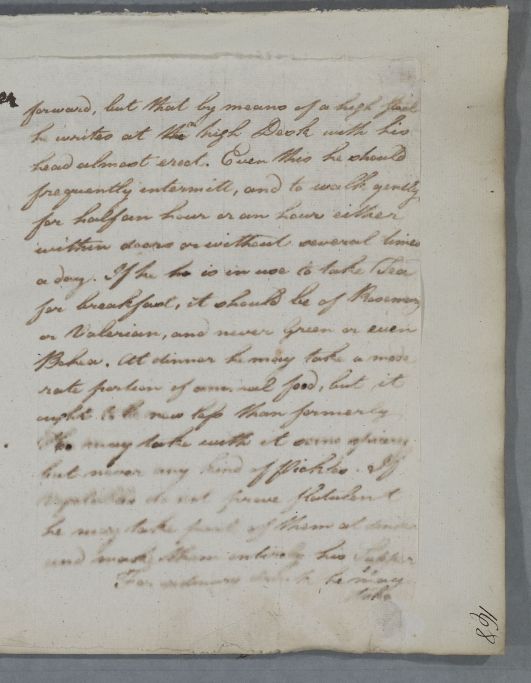 forward, but that by means of a high stool
he writes at the high Desk with his
head almost erect. Even this he should
frequently intermitt, and to walk gently
for half an hour or an hour either
within doors or without several times
a day. If he is in use to take Tea
for breakfast, it should be of Rosemary
or Valerian, and never Green or even
Bohea. At dinner he may take a mode
rate portion of animal food, but it
ought to be now less than formerly
He may take with it some spicery
but never any kind of Pickles. If
Vegetables do not prove flatulent
he may take part of them at dinner
and make them entirely his Supper
For ordinary drink he may
take
168